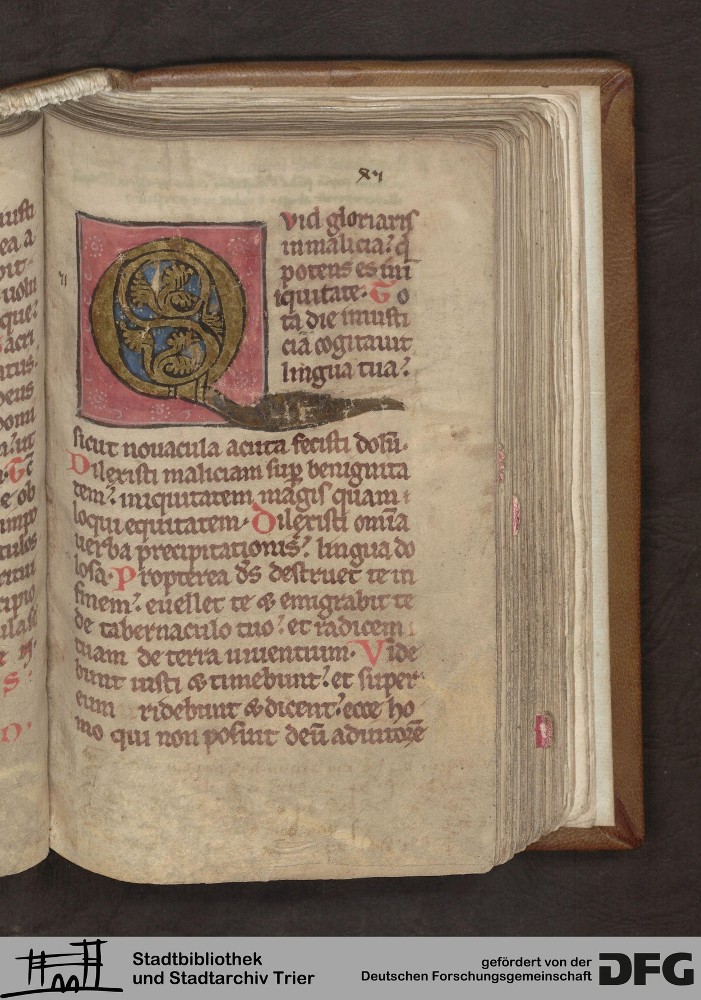 xvi
vii
Qvid gloriaris
in malicia? q̇
potens es in i
iquitate. To
ta die iniusti
ciā cogitauit
lingua tua?
sicut nouacula acuta fecisti dolū.
Dilexisti maliciam sup benignita
tem? iniquitatem magis quam
loqui equitatem. Dilexisti om̄ia
uerba precipitationis? lingua do
losa. Propterea ds̄ destruet te in
finem? euellet te & emigrabit te
de tabernaculo tuo? et radicem
tuam de terra uiuentium. Vide
bunt iusti & timebunt? et super
eum ridebunt & dicent? ecce ho
mo qui non posuit deū adiutorē
Stadtbibliothek
und Stadtarchiv Trier
gefördert von der
Deutschen Forschungsgemeinschaft DFG